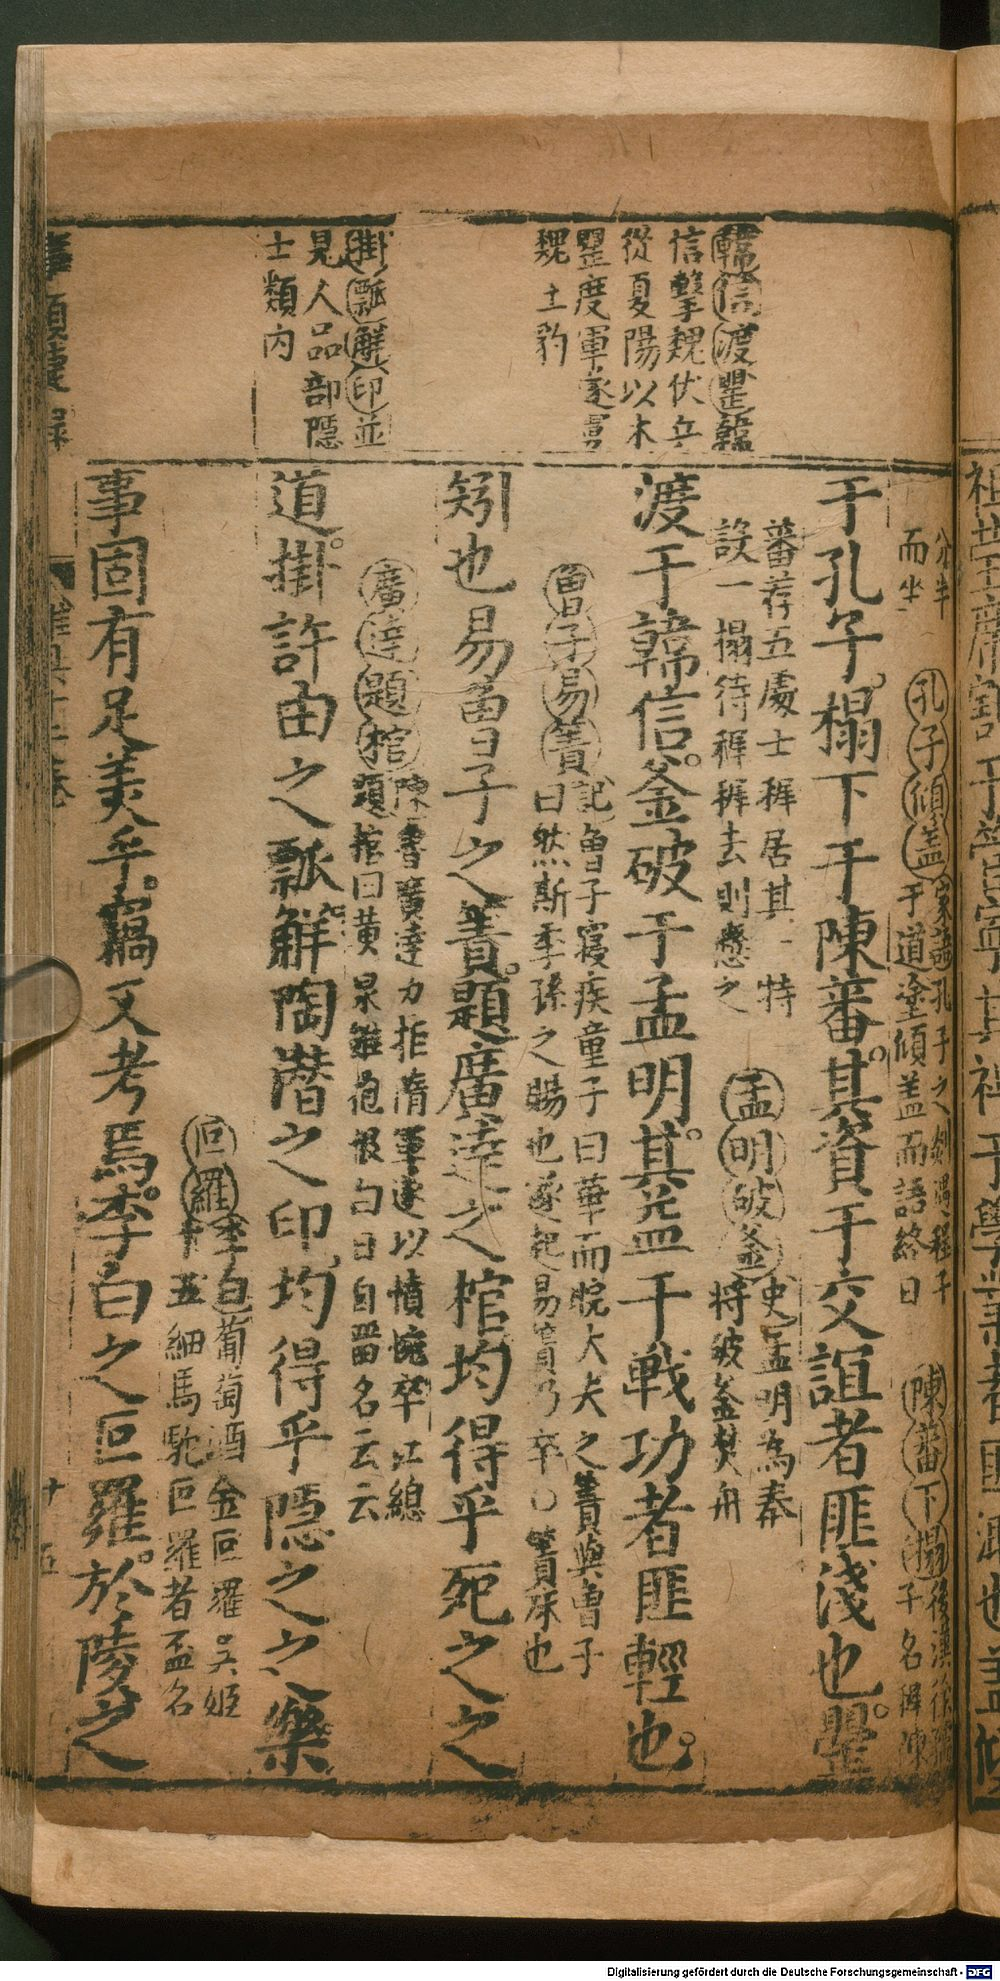 韓信渡罌韓
信擊魏伏兵
從夏陽以木
罌度軍遂虜
魏王豹
掛瓢解印並
見人品部隱
士類內
分半
而坐
孔子傾蓋家語孔子之剡遇程子
于道塗傾蓋而語終日
陳蕃下榻後漢徐穉
子名穉陳
于孔子榻下于陳蕃其資于交誼者匪淺也罌
蕃荐五處士穉居其一特
設一榻待穉穉去則懸之
孟明破釜史孟明為秦
將破釜焚舟
渡于韓信釜破于孟明其益于戰功者匪輕也
曾子易簀記曾子寢疾童子曰華而睆大夫之簀與曾子
曰然斯季孫之賜也遂起易簀乃卒○簀床也
矧也易曾子之簀題廣達之棺均得乎死之之
廣達題棺陳書廣達力拒隋軍遂以憤慨卒江總
題棺曰黃泉雖抱恨白日自留名云云
道掛許由之瓢解陶潛之印均得乎隱之之樂
叵羅李白葡萄酒金叵羅吳姬
十五細馬馱叵羅者盃名
事固有足美乎竊又考焉李白之叵羅於陵之
十五
Digitalisierung gefördert durch die Deutsche Forschungsgemeinschaft - DFG